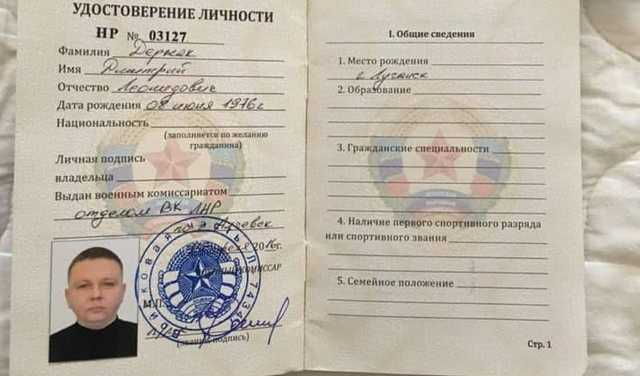 УДОСТОВЕРЕНИЕ ЛИЧНОСТИ
НР № 03127
Фамилия Держак
Имя Дмитрий
Отчество Леонидович
Дата рождения 08 июня 1976г
Национальность
(заполняется по желанию
гражданина)
Личная подпись
владельца
Выдан военным комиссариатом
отделом ВК ЛНР
2016г.
М.П.
подпись)
I. Общие сведения
1. Место рождения
г. Луганск
2. Образование
3. Гражданские специальности
4. Наличие первого спортивного разряда
или спортивного звания
5. Семейное положение
Стр. 1